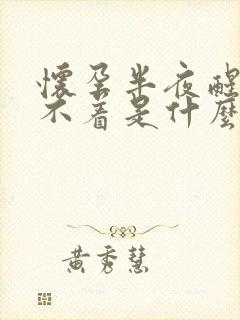 懷孕半夜醒
不着是什麼
黃秀慧